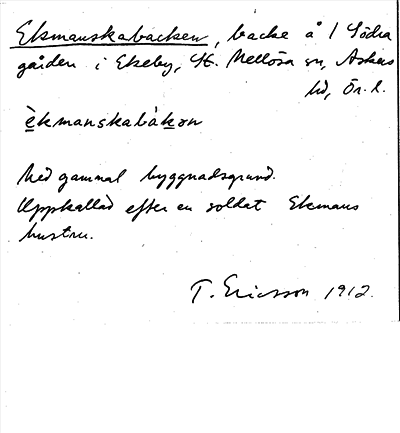 Ekmanskabacken, backe å 1 Södra
gården i Ekeby, St. Mellösa sn, Askers
hd, Ör. l.
èkmanskabàkɐn
Med gammal byggnadsgrund.
Uppkallad efter en soldat Ekmans
hustru.
T. Ericsson 1912.